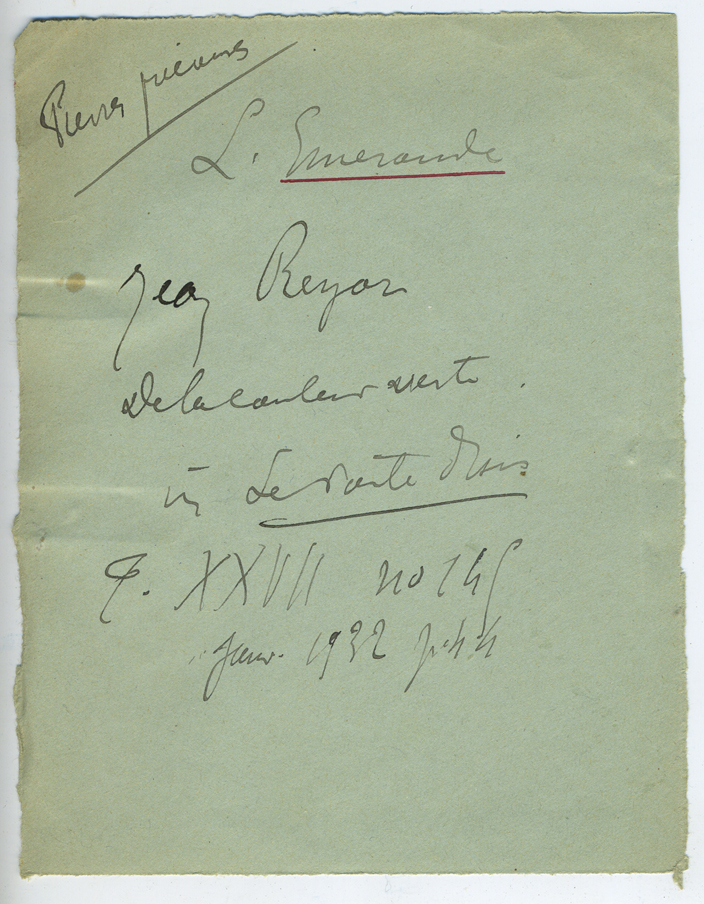 Pierres précieuses
L'Emeraude
Jean Reyor
De la couleur verte.
in Le Voile d'Isis
T. XXVII no 145
Janv. 1932 p. 44